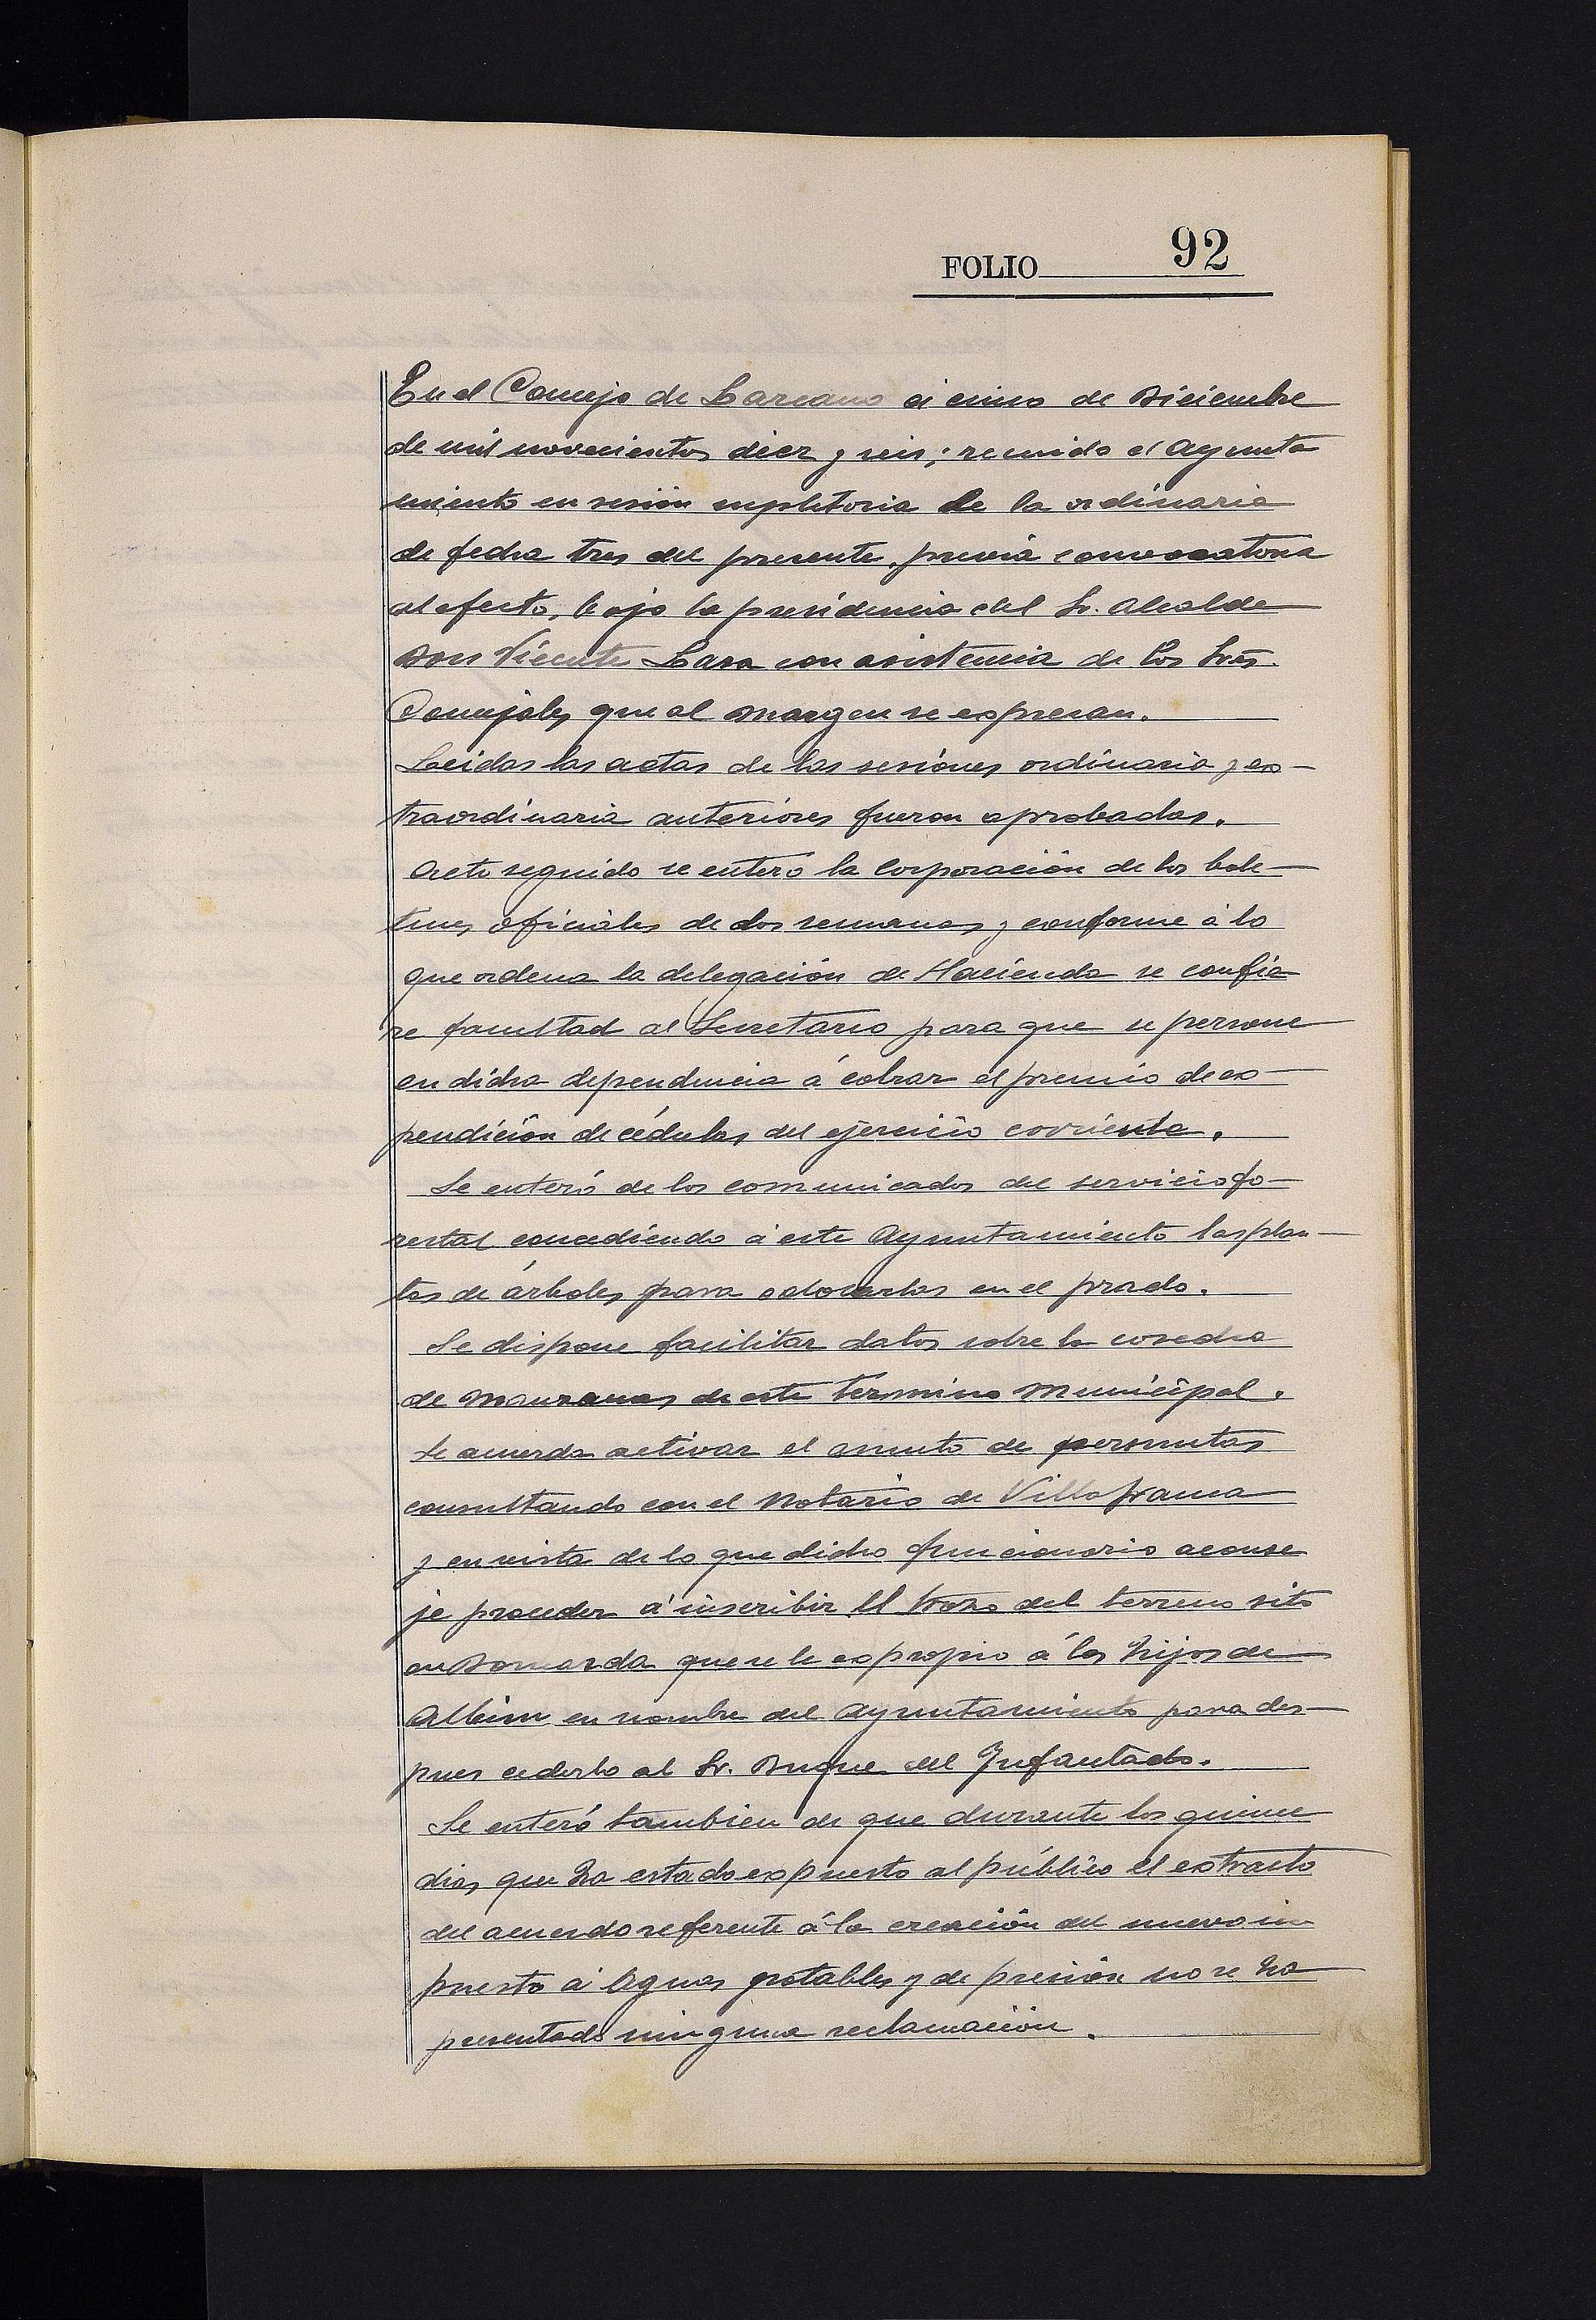 FOLIO 92
En el Concejo de Lazcano á cinco de Diciembre
de mil novecientos diez y seis; reunido el Ayunta
miento en sesión supletoria de la ordinaria
de fecha tres del presente, previa convocatoria
al efecto, bajo la presidencia del Sr. Alcalde
Don Vicente Lasa con asistencia de los Sres.
Concejales que al margen se expresan.
Leidas las actas de las sesiónes ordinaria y ex-
traordinaria anterióres fueron aprobadas.
Acto seguido se enteró la Corporación de los bole-
tines oficiales de dos semanas y conforme á lo
que ordena la delegación de Hacienda se confie
re facultad al Secretario para que se persone
en dicha dependencia á cobrar el premio de ex-
pendición de cédulas del ejercicio corriente.
Se enteró de los comunicados del servicio fo-
restal concediendo á este Ayuntamiento las plan-
tas de árboles para colocarlas en el prado.
Se dispone facilitar datos sobre la cosecha
de manzanas de este termino Municipal.
Se acuerda activar el asunto de permutas
consultando con el Notario de Villafranca
y en vista de lo que dicho funcionario aconse
je proceder á inscribir el trozo del terreno sito
en que se le expropio á los hijos de
Albisu en nombre del Ayuntamiento para des-
pues cederlo al Sr. Duque del Infantado.
Se enteró tambien de que durante los quince
dias que ha estado expuesto al público el extracto
del acuerdo referente á la creación del nuevo im
puesto á Aguas potables y de presión no se ha
presentado ninguna reclamación.